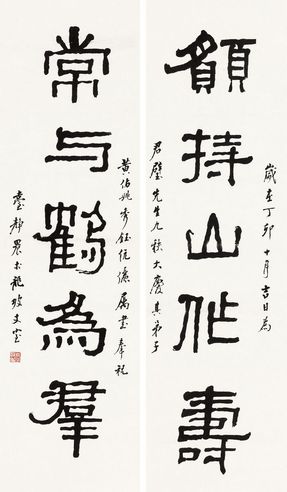 願持山作壽
常与鶴為羣
歲在丁卯十月吉日為
君璧先生九秩大慶其弟子
黃姚秀鈺伉儷屬書奉祝
臺靜農於龍坡丈室